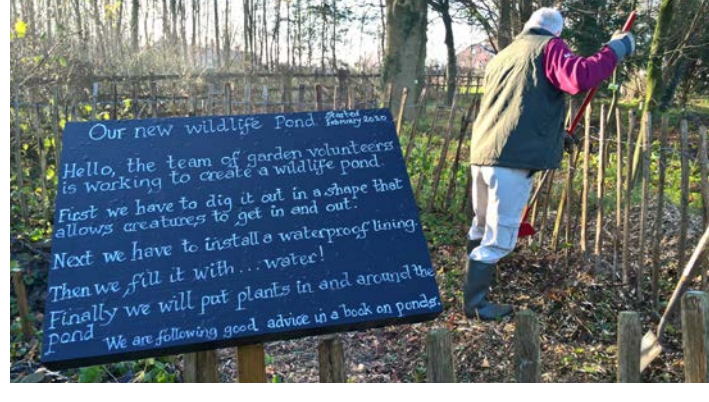 Our new wildlife Pond Started
February 2020
Hello, the team of garden volunteers
is working to create a wildlife pond.
First we have to dig it out in a shape that
allows creatures to get in and out.
Next we have to install a waterproof lining.
Then we fill it with...water!
Finally we will put plants in and around the
pond We are following good advice in a book on ponds.